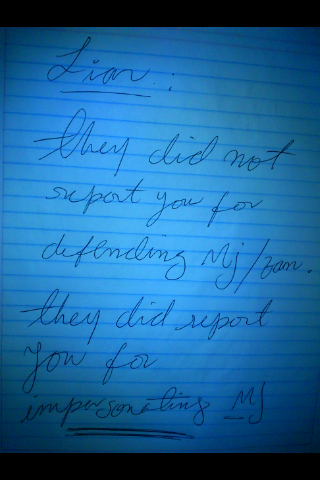 Liar :
they did not
report you for
defending MJ/zam.
they did report
you for
impersonating MJ